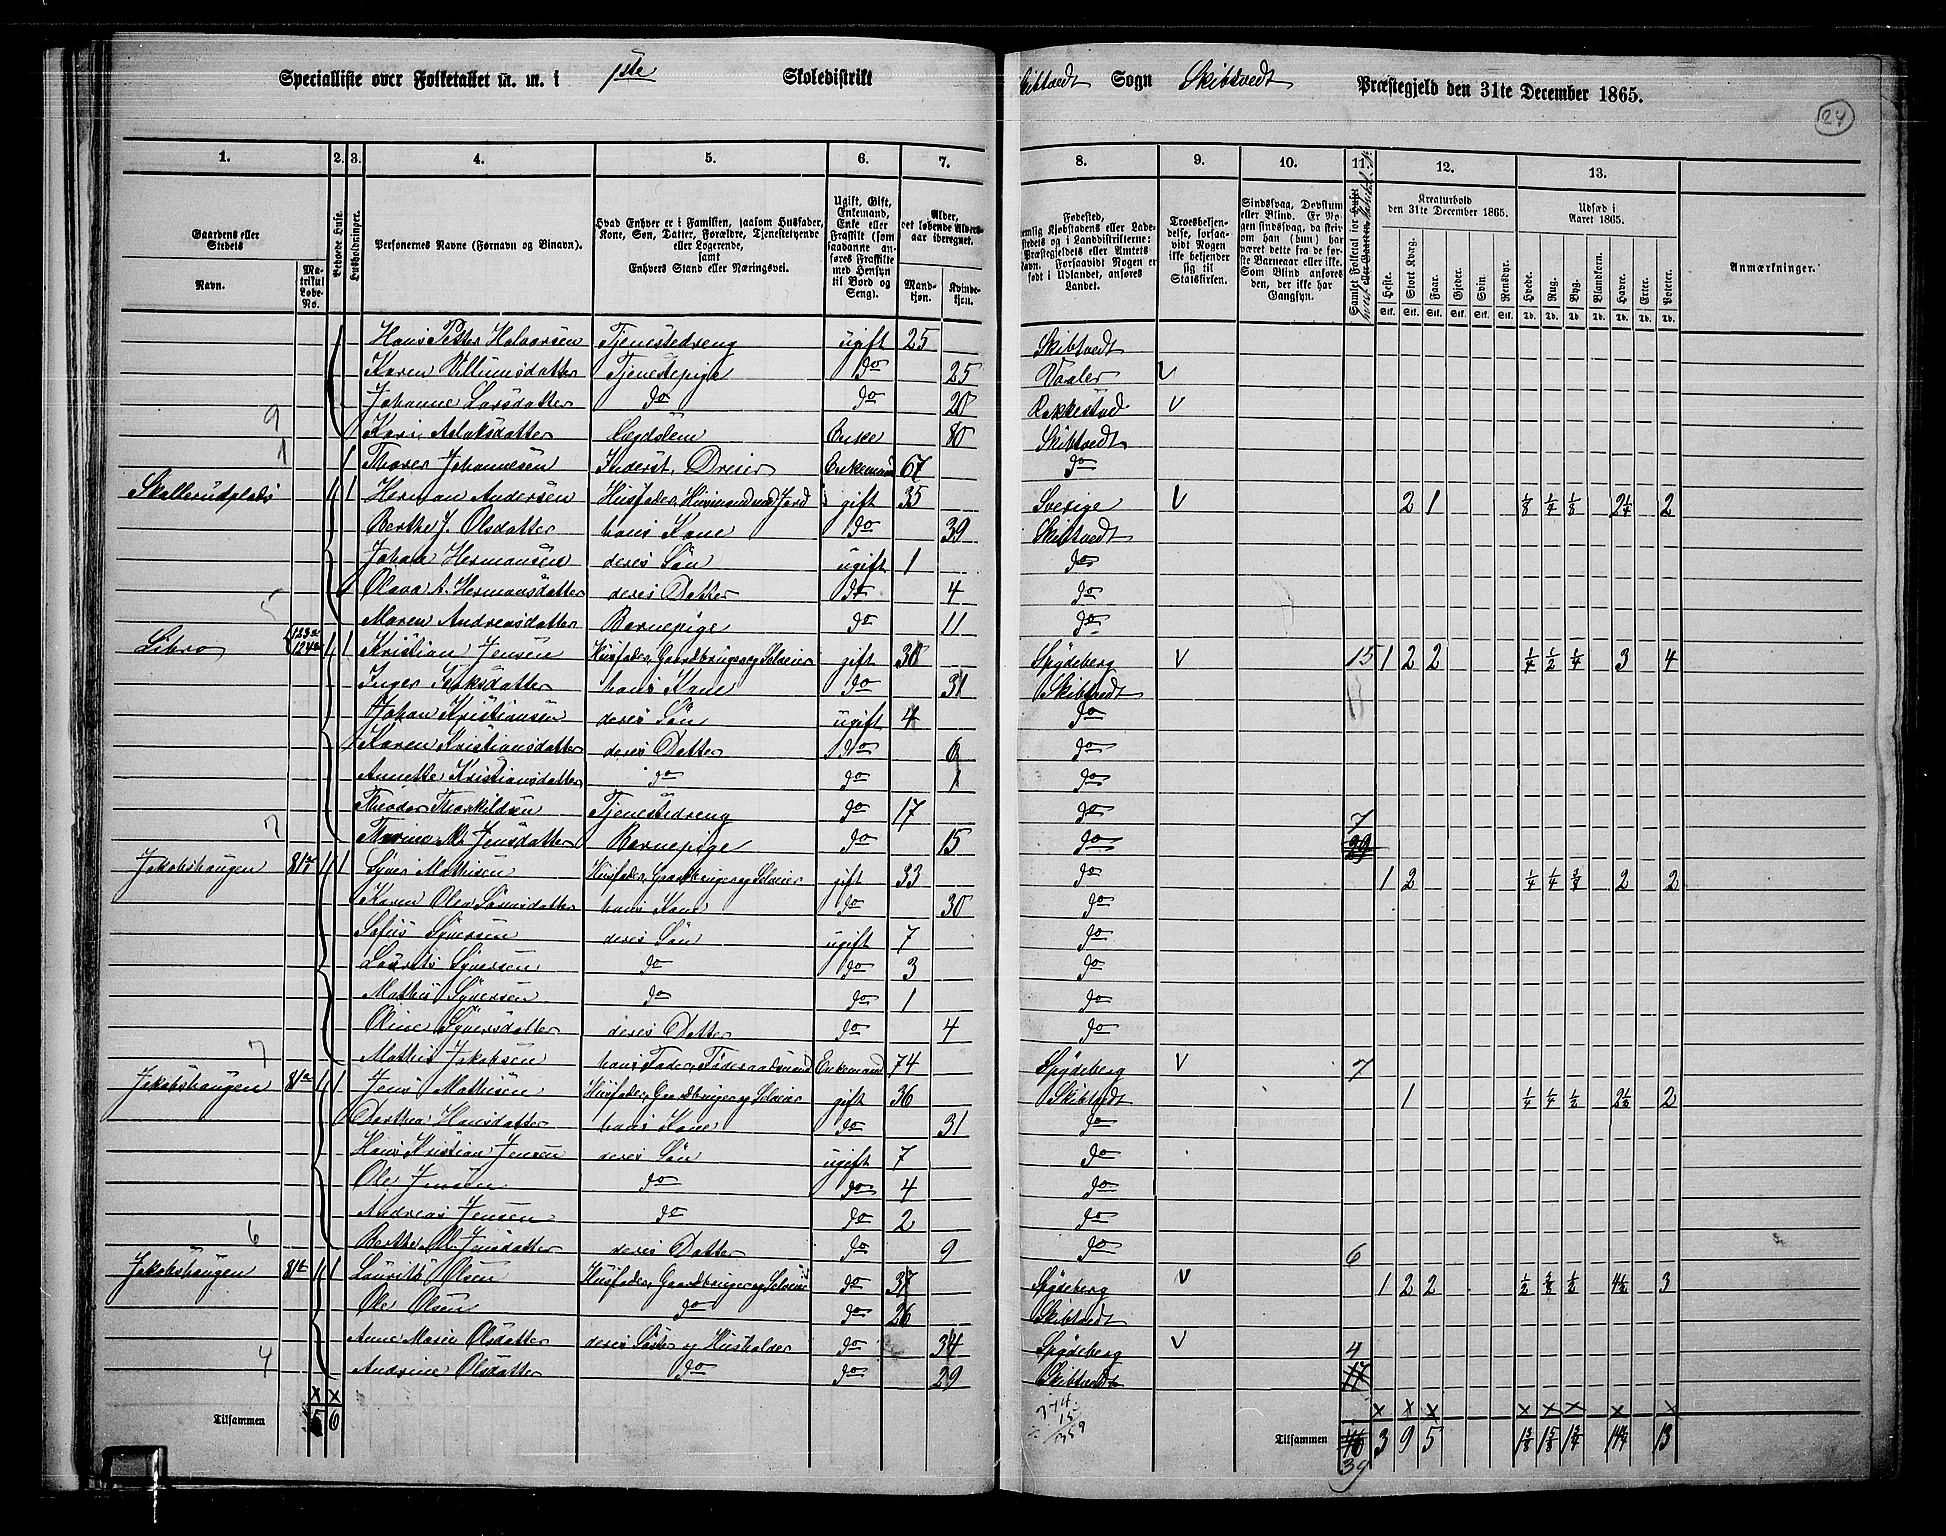 Specialliste over Folketallet m. m. i 1ste Skoledistrikt Skibtvedt Sogn Skibtvedt Præstegjeld den 31te December 1865.
24
1. 2. 3. 4. 5. 6. 7. 8. 9. 10. 11. 12. 13.
Gaardens eller Stedets
Navn.
Matrikul Løbe-No.
Beboede Huse.
Husholdninger.
Personernes Navne (Fornavn og Binavn).
Hvad Enhver er i Familien, saasom Husfader, Kone, Søn, Datter, Forældre, Tjenestetyende eller Logerende, samt Enhvers Stand eller Næringsvei.
Ugift, Gift, Enkemand, Enke eller Fraskilt (som saadanne anføres Fraskilte med Hensyn til Bord og Seng).
Alder, det løbende Alders-aar iberegnet.
Mand-kjøn.
Kvinde-kjøn.
Fødested,
Troesbekjendelse, forsaavidt Nogen ikke bekjender sig til Statskirken.
Sindssvag, Døvstum eller Blind.
Kreaturhold den 31te December 1865.
Heste. Stort Kvæg. Faar. Gjeder. Svin. Rensdyr.
Udsæd i Aaret 1865.
Hvede. Rug. Byg. Blandkorn. Havre. Erter. Poteter.
Anmærkninger.
Hans Petter Halvorsen Tjenestedreng ugift 25 Skibtvedt
Karen Villumsdatter Tjenestepige do 25 Vaaler V
Johanne Larsdatter do do 20 Rakkestad V
9 Kari Aslaksdatter Lægdslem Enke 80 Skibtvedt
1 1 Thores Johannesen Inderst, Dreier Enkemand 67 do
Skallerudplads 1 1 Herman Andersen Husfader, Huusmand med Jord gift 35 Sverige V 2 1 1/8 1/4 1/8 2 1/4 2
Berthe J. Olsdatter hans Kone do 39 Skibtvedt
Johan Hermansen deres Søn ugift 1 do
Olava A. Hermansdatter deres Datter do 4 do
5 Maren Andreasdatter Barnepige do 11 do
Libro 123a 124a 1 1 Kristian Jensen Husfader, Gaardbruger og Selveier gift 30 Spydeberg V 15 1 2 2 1/4 1/2 1/4 3 4
Inger Isaksdatter hans Kone do 31 Skibtvedt
Johan Kristiansen deres Søn ugift 4 do
Karen Kristiansdatter deres Datter do 6 do
Annette Kristiansdatter do do 1 do
Theodor Thorkildsen Tjenestedreng do 17 do 7
7 Thorine M. Jensdatter Barnepige do 15 do 29
Jakobshaugen 81 1 1 Syver Mathisen Husfader, Gaardbruger og Selveier gift 33 do 1 2 1/4 1/4 3/8 2 2
Karen Olea Larsdatter hans Kone do 30 do
Sofus Syversen deres Søn ugift 7 do
Laurits Syversen do do 3 do
Mathis Syversen do do 1 do
Oline Syversdatter deres Datter do 4 do
7 Mathis Jakobsen hans Fader, Føderaadsmand Enkemand 74 Spydeberg V 7
Jakobshaugen 81a 1 1 Jens Mathisen Husfader, Gaardbruger og Selveier gift 36 Skibtvedt 1 1/4 1/4 1/2 2 1/2 2
Dorthea Hansdatter hans Kone do 31 do
Hans Kristian Jensen deres Søn ugift 7 do
Ole Jensen do do 4 do
Andreas Jensen do do 2 do
6 Berthe M. Jensdatter deres Datter do 9 do 6
Jakobshaugen 81b 1 1 Laurits Olsen Husfader, Gaardbruger og Selveier do 37 Spydeberg V 1 2 2 1/2 3/8 1/2 4 1/2 3
Ole Olsen do do 26 Skibtvedt
Anne Marie Olsdatter deres Søster og Husholder do 34 Spydeberg V 4
4 Andrine Olsdatter do do 29 Skibtvedt 17
Tilsammen 5 6 374 15 359 Tilsammen 39 3 9 5 1 3/8 1 5/8 1 3/4 14 1/4 13